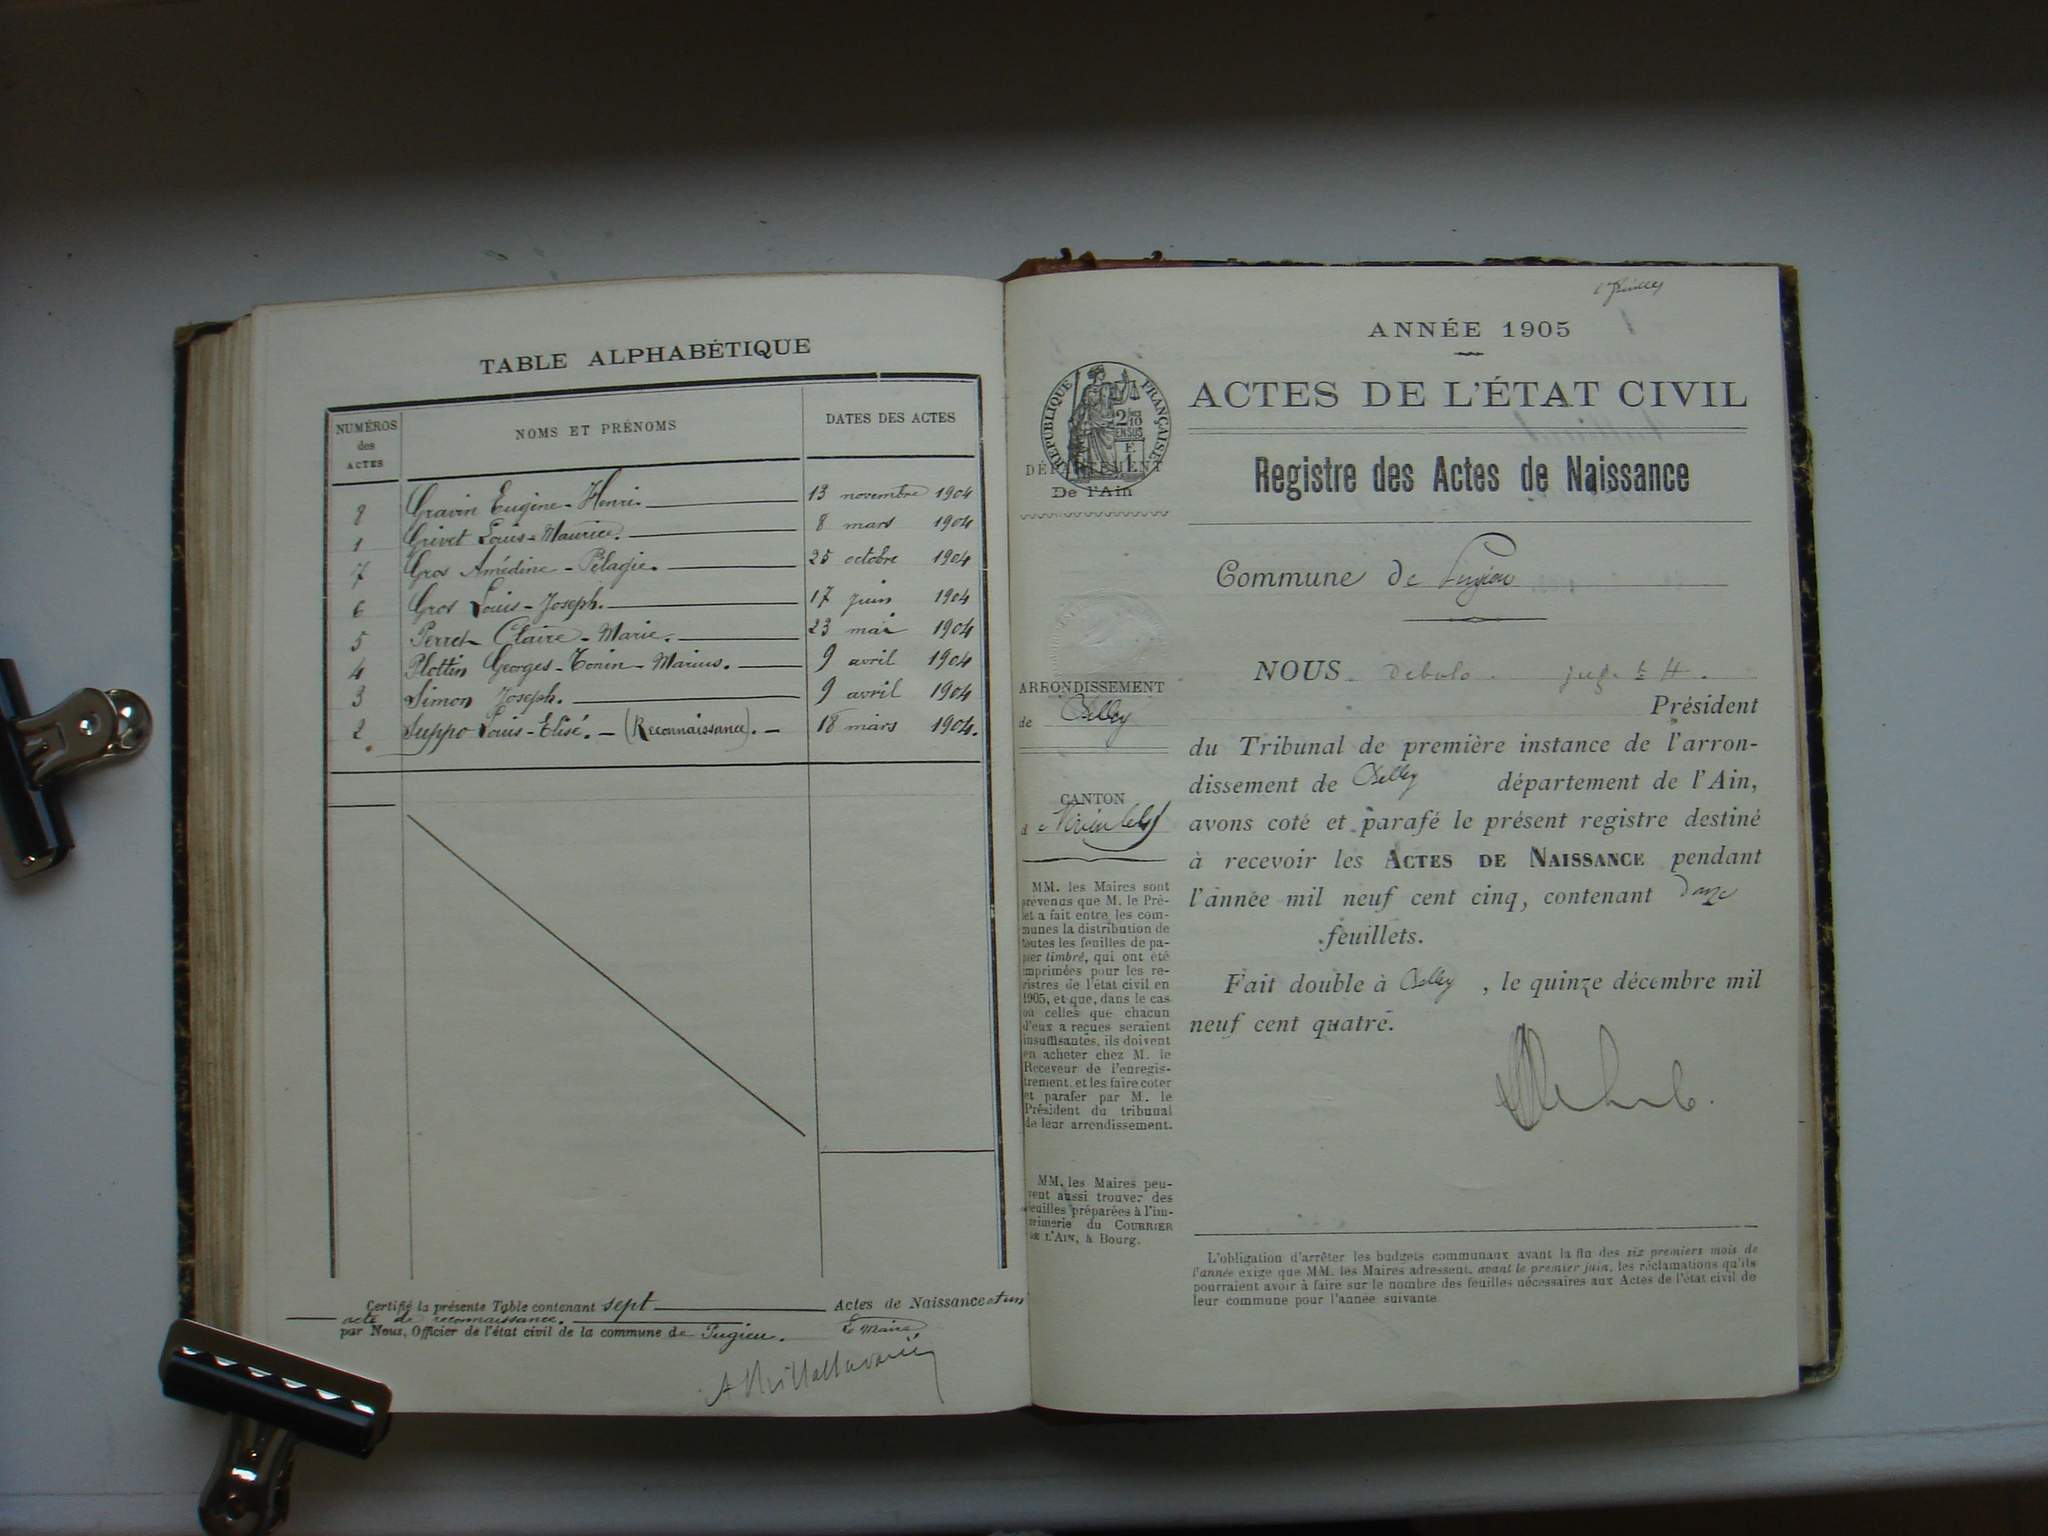 TABLE ALPHABÉTIQUE
NUMÉROS des ACTES
NOMS ET PRÉNOMS
DATES DES ACTES
8 Gravin Eugène-Henri. 13 novembre 1904
1 Grivet Louis-Maurice. 8 mars 1904
7 Gros Amédine-Pélagie. 25 octobre 1904
6 Gros Louis-Joseph. 17 juin 1904
5 Perret Claire-Marie. 23 mai 1904
4 Plottin Georges-Tonin-Marius. 9 avril 1904
3 Simon Joseph. 9 avril 1904
2 Suppo Louis-Elisé. - (Reconnaissance). - 18 mars 1904.
Certifié la présente Table contenant sept Actes de Naissance et un
acte de reconnaissance.
par Nous, Officier de l'état civil de la commune de Pugieu.
Le Maire
feuilles
ANNÉE 1905
ACTES DE L'ÉTAT CIVIL
RÉPUBLIQUE FRANÇAISE
DÉPARTEMENT
De l'Ain
Registre des Actes de Naissance
Commune de Pugieu
ARRONDISSEMENT
de Belley
CANTON
MM. les Maires sont
prévenus que M. le Pré-
et a fait entre les com-
munes la distribution de
toutes les feuilles de pa-
pier timbré, qui ont été
imprimées pour les re-
gistres de l'état civil en
1905, et que, dans le cas
où celles que chacun
d'eux a reçues seraient
insuffisantes, ils doivent
en acheter chez M. le
Receveur de l'enregis-
trement, et les faire coter
et parafer par M. le
Président du tribunal
de leur arrondissement.
MM. les Maires peu-
vent aussi trouver des
feuilles préparées à l'im-
primerie du COURRIER
DE L'AIN, à Bourg.
NOUS
Président
du Tribunal de première instance de l'arron-
dissement de Belley département de l'Ain,
avons coté et parafé le présent registre destiné
à recevoir les ACTES DE NAISSANCE pendant
l'année mil neuf cent cinq, contenant douze
feuillets.
Fait double à Belley, le quinze décembre mil
neuf cent quatre.
L'obligation d'arrêter les budgets communaux avant la fin des six premiers mois de
l'année exige que MM. les Maires adressent, avant le premier juin, les réclamations qu'ils
pourraient avoir à faire sur le nombre des feuilles nécessaires aux Actes de l'état civil de
leur commune pour l'année suivante